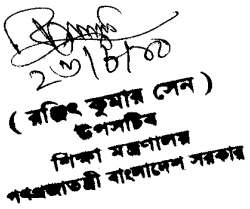 ২৩/৮/০০
( রঞ্জিৎ কুমার সেন )
উপসচিব
শিক্ষা মন্ত্রণালয়
গণপ্রজাতন্ত্রী বাংলাদেশ সরকার